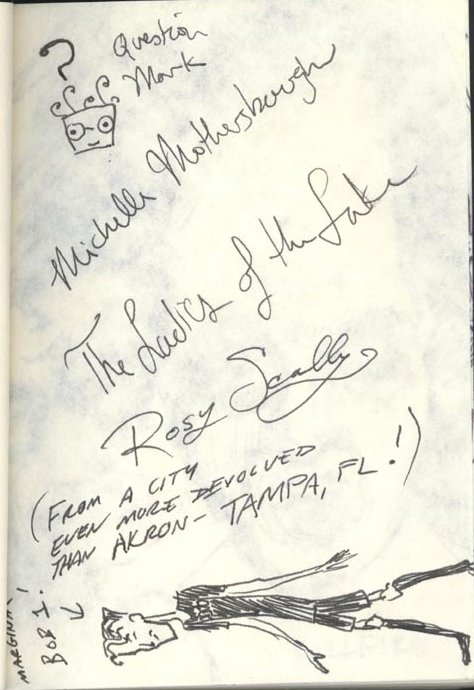 ?
Question
Mark
Michelle Mothersbaugh
The Ladies of the Lake
Rosy Scally
(FROM A CITY
EVEN MORE DEVOLVED
THAN AKRON- TAMPA, FL!)
MARGINAL
BOB 1!